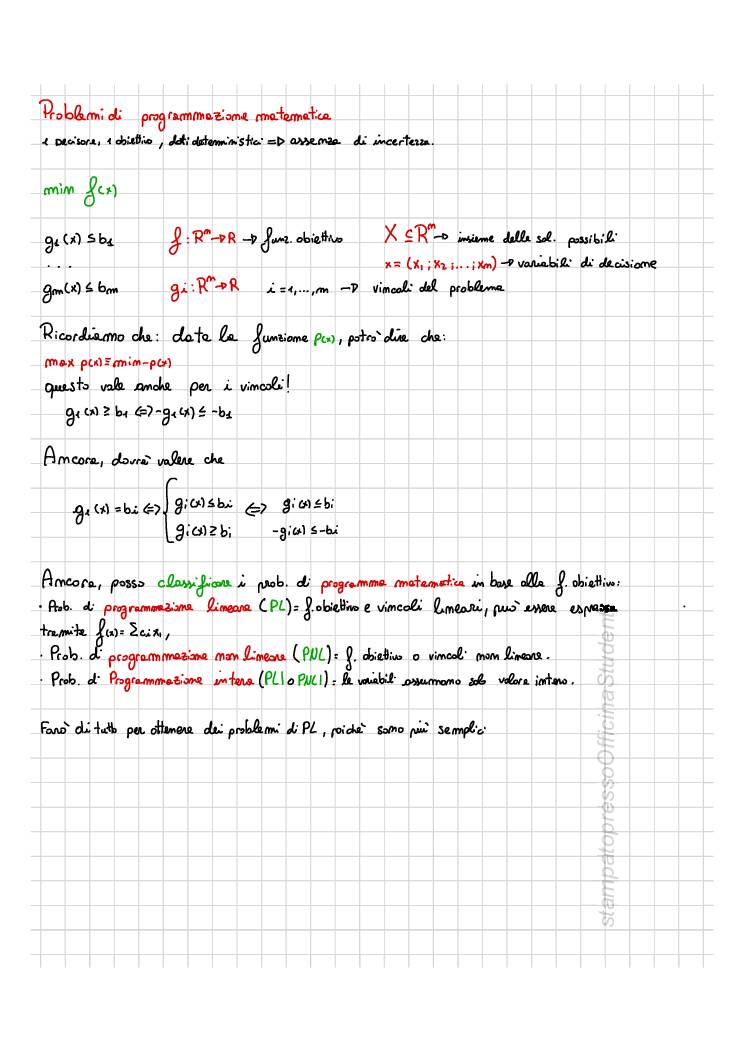 Problemi di programmazione matematica
1 Decisore, 1 obiettivo, dati deterministici => assenza di incertezza.
min f(x)
g₁(x) ≤ b₁ f: Rⁿ→R → funz. obiettivo X ⊆ Rⁿ → insieme delle sol. possibili
... x = (x₁; x₂; ...; xn) → variabili di decisione
gm(x) ≤ bm gi: Rⁿ→R i = 1, ..., m → vincoli del problema
Ricordiamo che: data la funzione p(x), potrò dire che:
max p(x) ≡ min -p(x)
questo vale anche per i vincoli!
g₁(x) ≥ b₁ <=> -g₁(x) ≤ -b₁
Ancora, dovrà valere che
g₁(x) = bi <=> { gi(x) ≤ bi <=> gi(x) ≤ bi
gi(x) ≥ bi -gi(x) ≤ -bi
Ancora, posso classificare i prob. di programma matematica in base alla f. obiettivo:
· Prob. di programmazione lineare (PL) = f. obiettivo e vincoli lineari, può essere espressa
tramite f(x) = Σ ci xi,
· Prob. di programmazione non lineare (PNL) = f. obiettivo o vincoli non lineare.
· Prob. di Programmazione intera (PLI o PNLI) = le variabili assumono solo valore intero.
Farò di tutto per ottenere dei problemi di PL, poichè sono più semplici
stampatopressoOfficinaStudenti